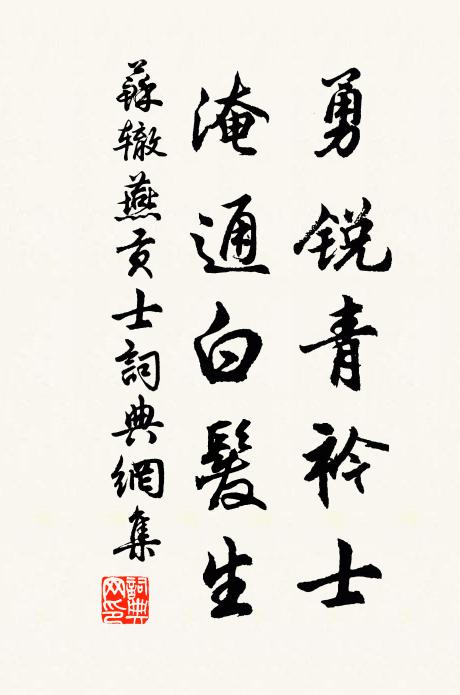 勇锐青衿士
淹通白髮生
蘇辙燕贡士詞典網集
詞典
网印